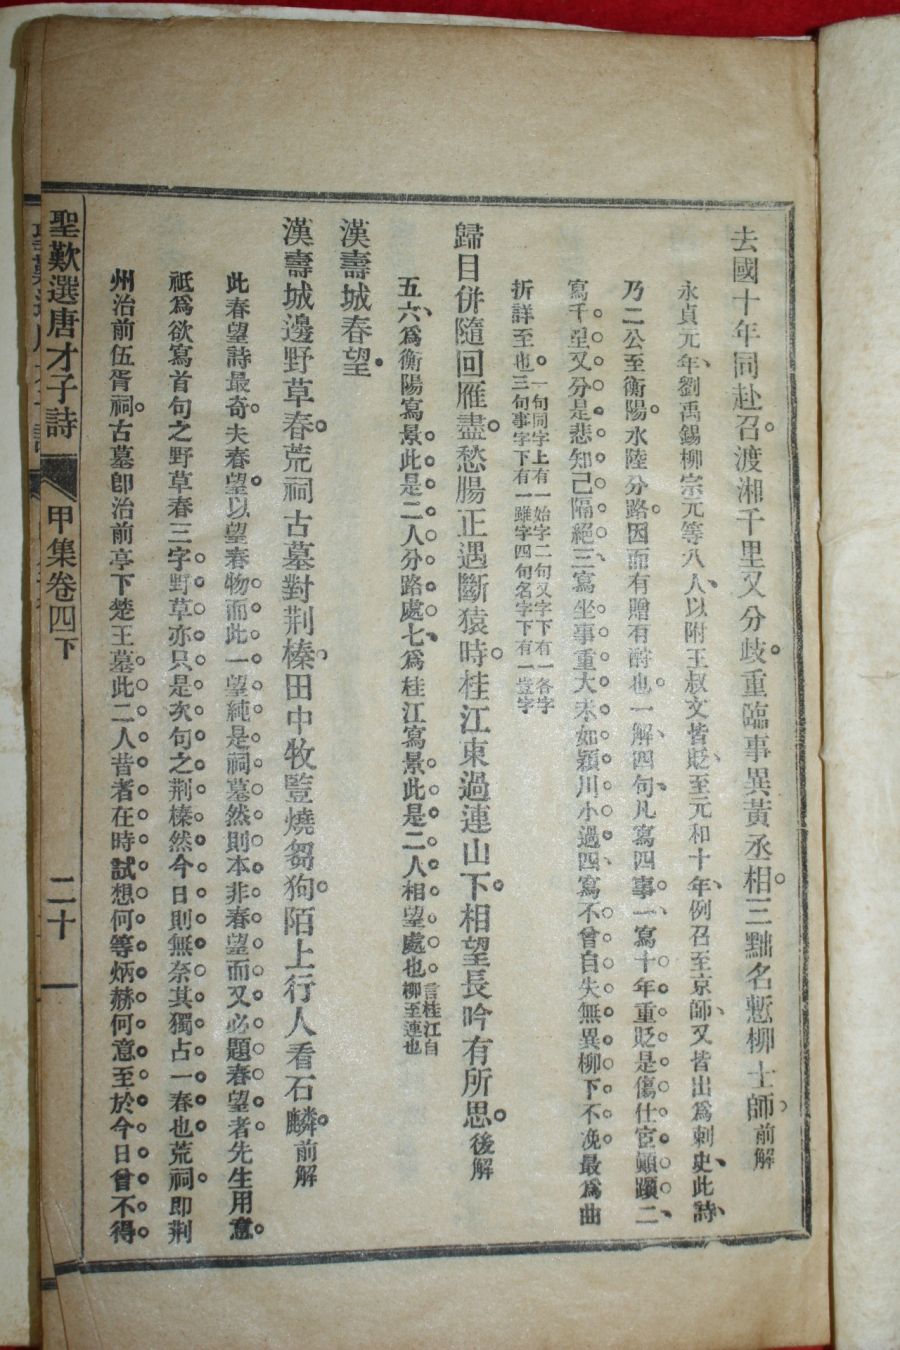 去國十年同赴召。渡湘千里又分歧。重臨事異黃丞相。三黜名慙柳士師。前解
永貞元年、劉禹錫柳宗元等八人、以附王叔文皆貶、至元和十年、例召至京師、又皆出爲刺史、此詩、
乃二公至衡陽。水陸分路。因而有贈有酧也。一解、四句、凡寫四事、一寫十年重貶、是傷仕宦顚躓。二、
寫千里又分、是悲知己隔絕。三、寫坐事重大、未如潁川小過。四、寫不曾自失、無異柳下不浼。最爲曲
折詳至也。一句同字上有一始字二句又字下有一各字
三句事字下有一雖字四句名字下有一豈字
歸目併隨回雁盡。愁腸正遇斷猿時。桂江東過連山下。相望長吟有所思。後解
五六、爲衡陽寫景。此是二人分路處。七、爲桂江寫景。此是二人相望處也。言桂江自
柳至連也
漢壽城春望。
漢壽城邊野草春。荒祠古墓對荆榛。田中牧豎燒芻狗。陌上行人看石麟。前解
此春望詩最奇。夫春望。以望春物。而此一望。純是祠墓。然則本非春望。而又必題春望者。先生用意。
祗爲欲寫首句之野草春三字。野草亦只是次句之荆榛。然今日則無奈其獨占一春也。荒祠。卽荆
州治前伍胥祠。古墓卽治前亭下楚王墓。此二人昔者在時。試想何等炳赫。何意至於今日。曾不得。
聖歎選唐才子詩
甲集卷四下
二十一